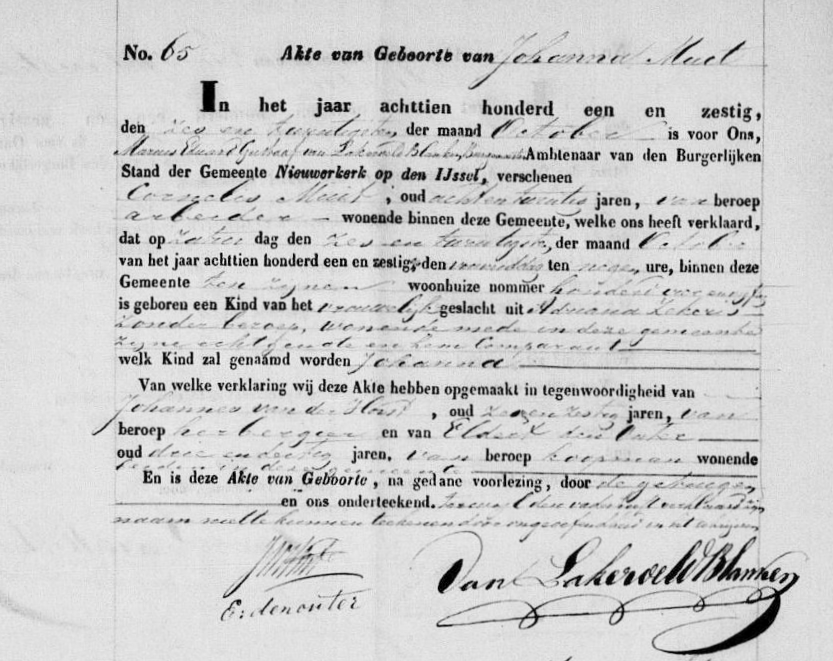 No. 65 Akte van Geboorte van Johanna Muit
In het jaar achttien honderd een en zestig,
den zes en twintigsten der maand October is voor Ons,
Ambtenaar van den Burgerlijken
Stand der Gemeente Nieuwerkerk op den IJssel, verschenen
Cornelis Muit, oud acht en twintig jaren, van beroep
arbeider wonende binnen deze Gemeente, welke ons heeft verklaard,
dat op zatur dag den zes en twintigsten, der maand October
van het jaar achttien honderd een en zestig, des voormiddags ten negen ure, binnen deze
Gemeente ten zynen woonhuize nommer honderd
is geboren een Kind van het vrouwelijk geslacht uit Adriana
zonder beroep, wonende mede in deze gemeente
zyne echtgenoote en hem Comparant
welk Kind zal genaamd worden Johanna
Van welke verklaring wij deze Akte hebben opgemaakt in tegenwoordigheid van
Johannes van der Horst, oud zes en zestig jaren, van
beroep herbergier en van den Outer
oud drie en dertig jaren, van beroep koopman wonende
beiden in deze gemeente
En is deze Akte van Geboorte, na gedane voorlezing, door de getuigen
en ons onderteekend. terwyl de vader heeft verklaard zijn
naam niet te kunnen teekenen door ongeoefendheid in het schryven
E: den outer
Van Lakerveld Blanken